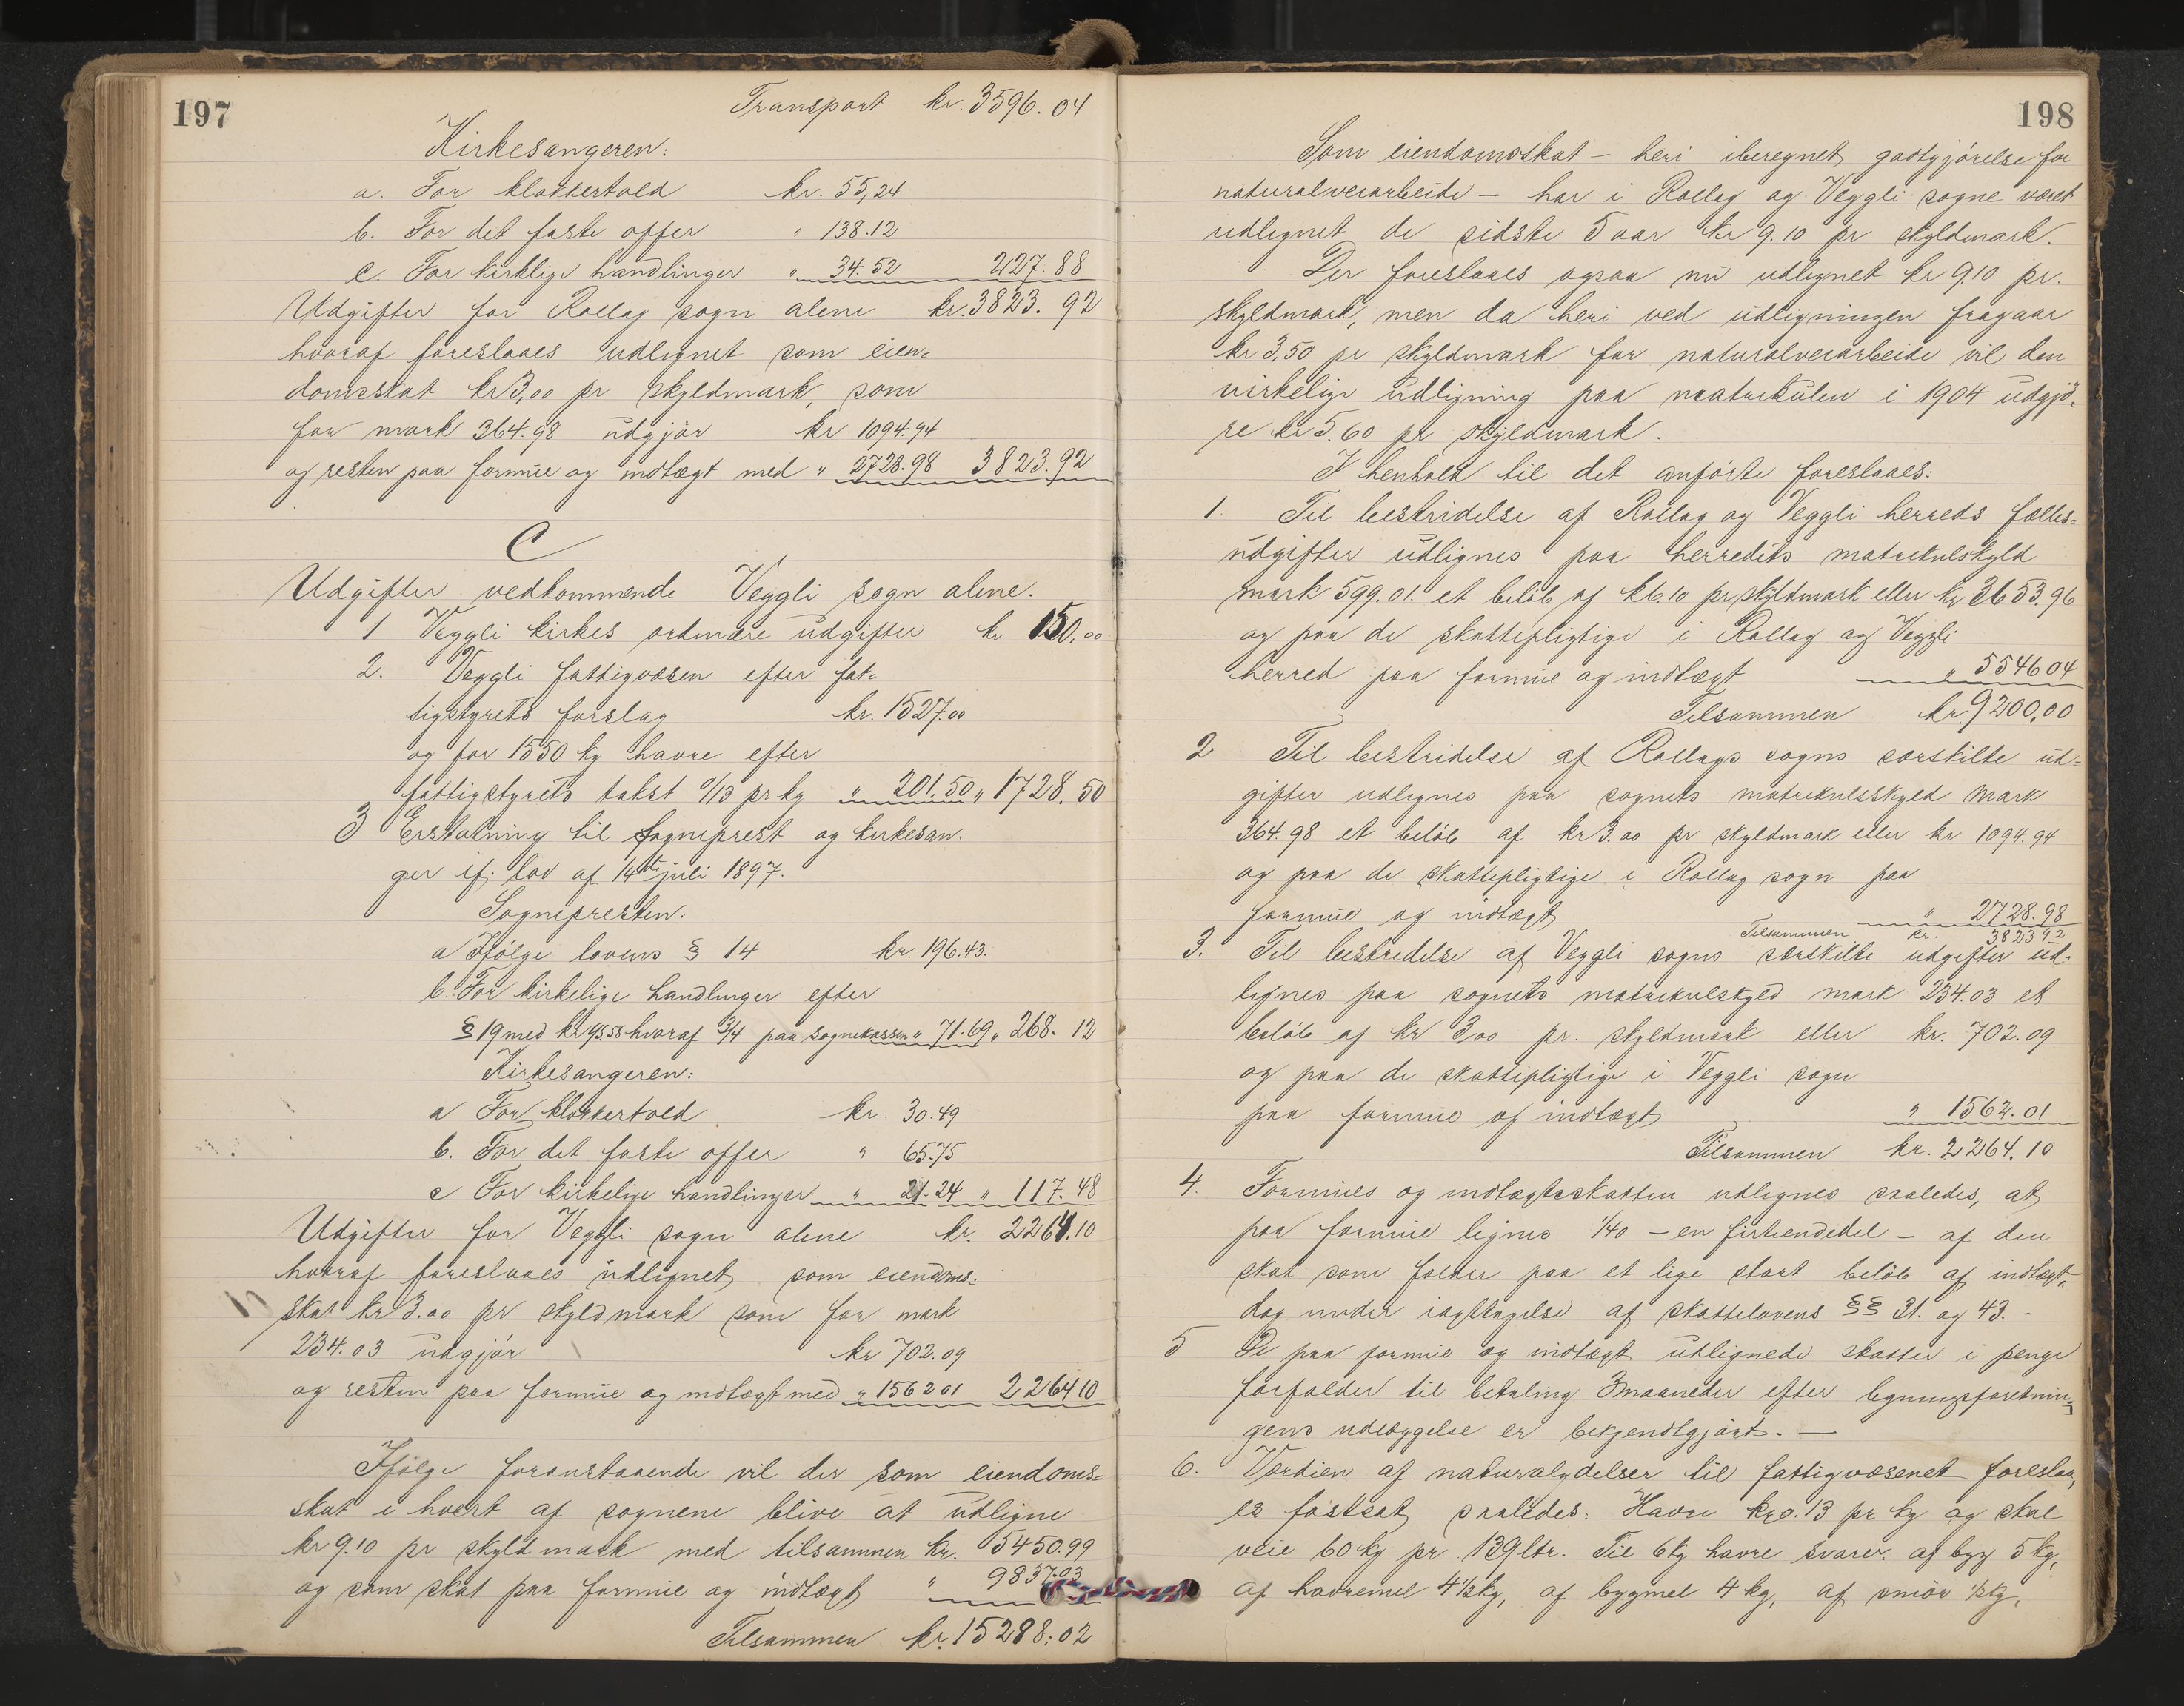 197
Transport kr. 3596.04
Kirkesangeren:
a. For klokkertold kr. 55,24
b. For det faste offer " 138.12
c. For kirklige handlinger " 34.52 227.88
Udgifter for Rollag sogn alene kr. 3823.92
hvoraf foreslaaes udlignet som eien=
domsskat kr 3,00 pr skyldmark, som
for mark 364.98 udgjør kr 1094.94
og resten paa formue og indtægt med " 2728.98 3823.92
C
Udgifter vedkommende Veggli sogn alene.
1 Veggli kirkes ordinære udgifter kr 150.00
2. Veggli fattigvæsen efter fat=
tigstyrets forslag kr. 1527.00
og for 1550 kg havre efter
fattigstyrets takst 0/13 pr kg " 201.50 " 1728.50
3 Erstatning til Sogneprest og kirkesan.
ger if. lov af 14de juli 1897.
Sognepresten.
a Ifølge lovens § 14 kr. 196.43.
b. For kirkelige handlinger efter
§ 19 med kr 95.58 hvoraf 3/4 paa sognekassen " 71.69 " 268.12
Kirkesangeren:
a For klokkertold kr. 30.49
b. For det faste offer " 65.75
c For kirkelige handlinger " 21.24 " 117.48
Udgifter for Veggli sogn alene kr. 2264.10
hvoraf foreslaaes udlignet som eiendoms=
skat kr 3.00 pr skyldmark som for mark
234.03 udgjør kr 702.09
og resten paa formue og indtægt med " 1562 01 2264 10
Ifølge foranstaaende vil der som eiendoms=
skat i hvert af sognene blive at udligne
kr 9.10 pr skyldmark med tilsammen kr. 5450.99
og som skat paa formue og indtægt " 9837.03
Tilsammen kr. 15288.02
198
Som eiendomsskat – heri iberegnet godtgjørelse for
naturalveiarbeide – har i Rollag og Veggli sogne været
udlignet de sidste 5 aar kr 9.10 pr skyldmark.
Der foreslaaes ogsaa nu udlignet kr 9.10 pr.
skyldmark, men da heri ved udligningen fragaar
kr 3,50 pr skyldmark for naturalveiarbeide vil den
virkelige udligning paa matrikulen i 1904 udgjø=
re kr 5.60 pr skyldmark.
I henhold til det anførte foreslaaes:
1. Til bestridelse af Rollag og Veggli herreds fælles=
udgifter udlignes paa herredets matrikulskyld
mark 599.01 et beløb af k 6.10 pr skyldmark eller kr 3653.96
og paa de skattepligtige i Rollag og Veggli
herred paa formue og indtægt " 5546 04
Tilsammen kr 9200,00
2 Til bestridelse af Rollags sogns særskilte ud=
gifter udlignes paa sognets matrikulsskyld mark
364.98 et beløb af kr 3.00 pr skyldmark eller kr 1094.94
og paa de skattepligtige i Rollag sogn paa
formue og indtægt " 2728.98
Tilsammen kr. 3823 92
3. Til bestridelse af Veggli sogns særskilte udgifter ud=
lignes paa sognets matrikulskyld mark 234.03 et
beløb af kr 3,00 pr. skyldmark eller kr. 702.09
og paa de skattepligtige i Veggli sogn
paa formue og indtægt " 1562.01
Tilsammen kr. 2264.10
4. Formues og indtægtsskatten udlignes saaledes, at
paa formue lignes 1/40 – en firtiendedel – af den
skat som falder paa et lige stort beløb af indtægt=
dog under iagttagelse af skattelovens §§ 31. og 43. –
5 De paa formue og indtægt udlignede skatter i penge
forfalder til betaling 3 maaneder efter ligningsforetnin=
gens udlæggelse er bekjendtgjørt. –
6. Værdien af naturalydelser til fattigvæsenet foreslaa,
es fastsat saaledes: Havre kr 0.13 pr kg og skal
veie 60 kg pr. 139 ltr. Til 6 kg havre svarer af byg 5 kg,
af havremel 4 1/2 kg, af bygmel 4 kg, af smør 1/2 kg,